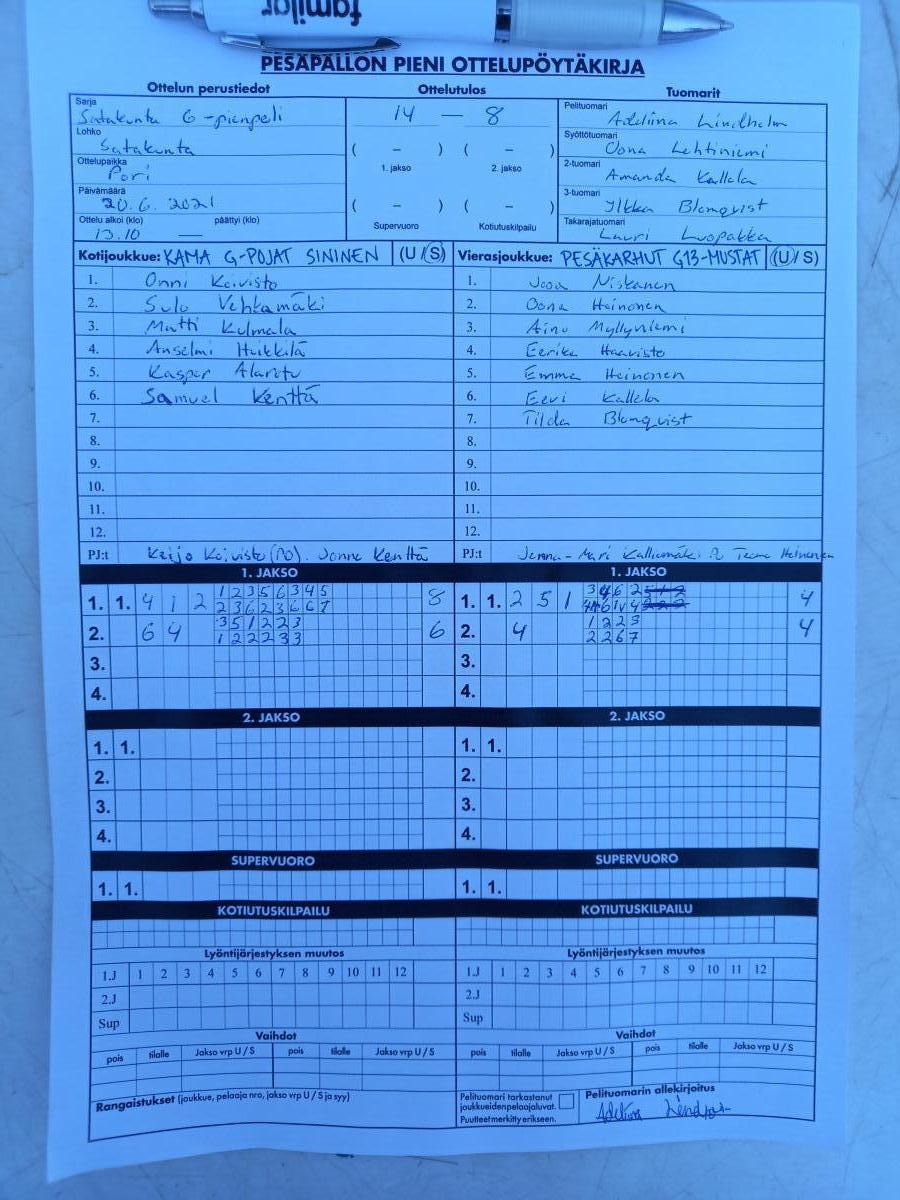 familar
PESÄPALLON PIENI OTTELUPÖYTÄKIRJA
Ottelun perustiedot Ottelutulos Tuomarit
Sarja
Satakunta G-pienpeli
Lohko
Satakunta
Ottelupaikka
Pori
Päivämäärä
20.6.2021
Ottelu alkoi (klo) päättyi (klo)
13.10 —
14 — 8
( – ) ( – )
1. jakso 2. jakso
( – ) ( – )
Supervuoro Kotiutuskilpailu
Pelituomari
Adeliina Lindholm
Syöttötuomari
Oona Lehtiniemi
2-tuomari
Amanda Kallela
3-tuomari
Ilkka Blomqvist
Takarajatuomari
Lauri Luopakka
Kotijoukkue: KAMA G-POJAT SININEN (U/S) Vierasjoukkue: PESÄKARHUT G13-MUSTAT (U/S)
1. Onni Koivisto 1. Joon Niskanen
2. Sulo Vehkamäki 2. Oona Heinonen
3. Matti Kulmala 3. Aino Myllyniemi
4. Anselmi Heikkilä 4. Eerika Haavisto
5. Kasper Alarotu 5. Emma Heinonen
6. Samuel Kenttä 6. Eevi Kallela
7. 7. Tilda Blomqvist
8. 8.
9. 9.
10. 10.
11. 11.
12. 12.
PJ:t Keijo Koivisto (PO). Janne Kenttä PJ:t Jenna-Mari Kalliomäki Teemu Heinonen
1. JAKSO 1. JAKSO
1. 1. 4 1 2 1 2 3 5 6 3 4 5 8 1. 1. 2 5 1 3 4 6 2 4
2 3 6 2 3 6 6 7
2. 6 4 3 5 1 2 2 3 6 2. 4 1 2 2 3 4
1 2 2 2 3 3 2 2 6 7
3. 3.
4. 4.
2. JAKSO 2. JAKSO
1. 1. 1. 1.
2. 2.
3. 3.
4. 4.
SUPERVUORO SUPERVUORO
1. 1. 1. 1.
KOTIUTUSKILPAILU KOTIUTUSKILPAILU
Lyöntijärjestyksen muutos Lyöntijärjestyksen muutos
1.J 1 2 3 4 5 6 7 8 9 10 11 12 1.J 1 2 3 4 5 6 7 8 9 10 11 12
2.J 2.J
Sup Sup
Vaihdot Vaihdot
pois tilalle Jakso vrp U / S pois tilalle Jakso vrp U / S pois tilalle Jakso vrp U / S pois tilalle Jakso vrp U / S
Rangaistukset (joukkue, pelaaja nro, jakso vrp U / S ja syy)
Pelituomari tarkastanut
joukkueidenpelaajaluvat.
Puutteet merkitty erikseen.
Pelituomarin allekirjoitus